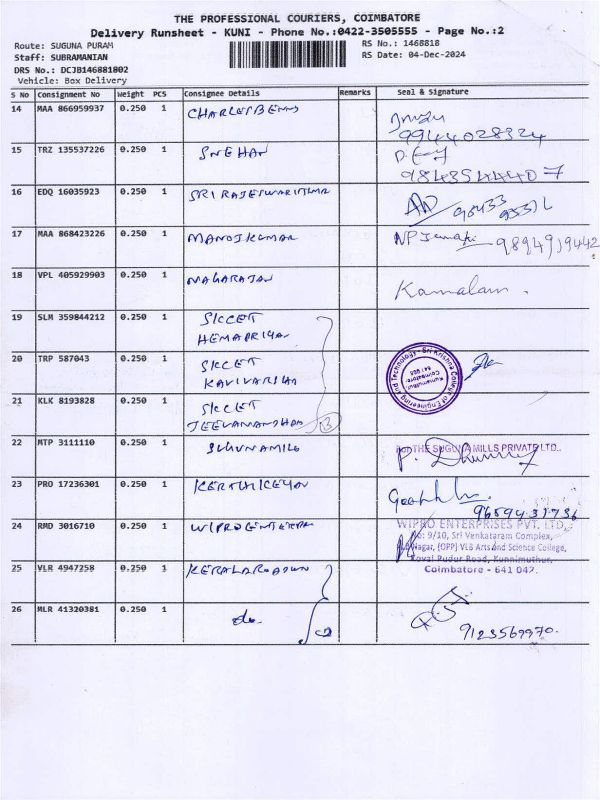 THE PROFESSIONAL COURIERS, COIMBATORE
Delivery Runsheet - KUNI - Phone No.:0422-3505555 - Page No.:2
Route: SUGUNA PURAM
RS No.: 1468818
Staff: SUBRAMANIAN
RS Date: 04-Dec-2024
DRS No.: DCJB146881802
Vehicle: Box Delivery
S No Consignment No Weight PCS Consignee Details Remarks Seal & Signature
14 MAA 866959937 0.250 1 CHARLES BENNS
9944028324
15 TRZ 135537226 0.250 1 SNEHAN
9843544407
16 EDQ 16035923 0.250 1
17 MAA 868423226 0.250 1 MANOJKUMAR 9894919442
18 VPL 405929903 0.250 1 NAGARAJAN Kamalam.
19 SLM 359844212 0.250 1 SKCCET
HEMAPRIYA
20 TRP 587043 0.250 1 SKCCET
KAVIVARSHA
21 KLK 8193828 0.250 1 SKCCET
JEEVANANDHAM
Sri Krishna College of Engineering and Technology
Kuniamuthur
Coimbatore
641 008
22 MTP 3111110 0.250 1 SUGUNAMILL
For THE SUGUNA MILLS PRIVATE LTD.,
23 PRO 17236301 0.250 1 KERTHIKEYAN
9659431736
24 RMD 3016710 0.250 1 WIPRO ENTERPR
WIPRO ENTERPRISES PVT. LTD.,
No: 9/10, Sri Venkataram Complex,
Nagar, (OPP) VLB Arts and Science College,
Kovai Pudur Road, Kunnimuthur,
Coimbatore - 641 042.
25 VLR 4947258 0.250 1
26 MLR 41320381 0.250 1 do.
9123569970.